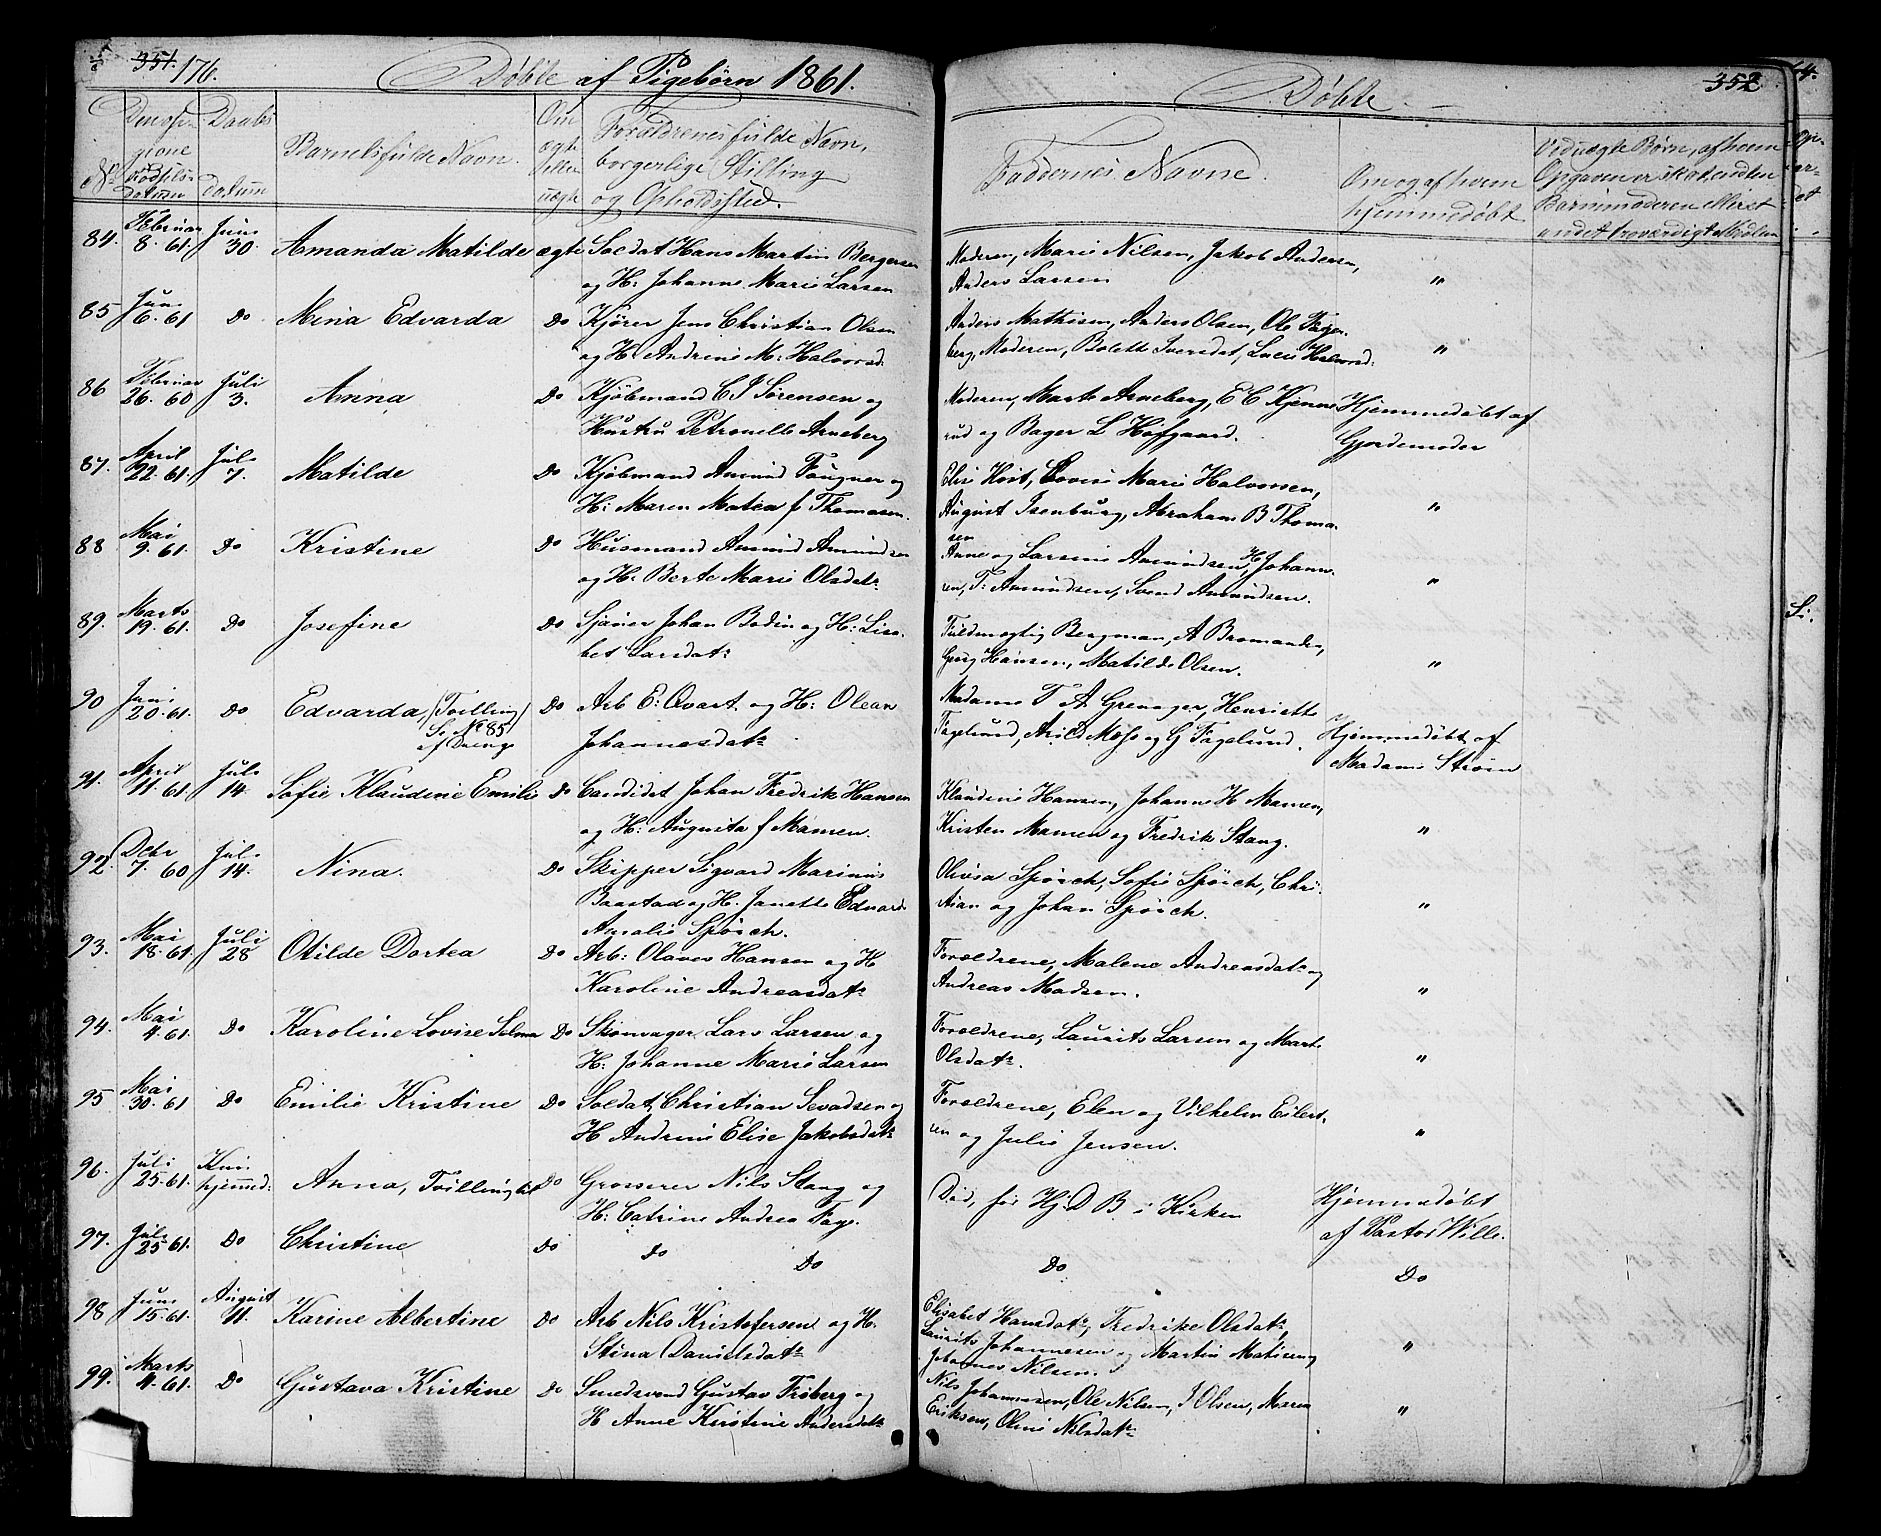 351. 176. Døbte af Pigebørn 1861.
No
Den opgivne Fødsels-datum
Daabs datum
Barnets fulde Navn.
Om ægte eller uægte
Forældrenes fulde Navn, borgerlige Stilling og Opholdssted.
84. Februar 8. 61. Juni 30. Amanda Matilde ægte Soldat Hans Martin Bergersen
og H: Johanne Marie Larsen
85 Juni 6. 61 Do Mina Edvarda Do Kjører Jens Christian Olsen
og H. Andrine M. Halvorsd.
86 Februar 26. 60 Juli 3. Anna Do Kjøbmand C J Sørensen og
Hustru Petronelle Arneberg
87. April 22. 61. Juli 7. Matilde Do Kjøbmand Amund Faugner og
H: Maren Matea f Thomasen.
88 Mai 9. 61. Do Kristine Do Husmand Amund Amundsen
og H: Berte Marie Olsdat:
89. Marts 19. 61. Do Josefine Do Sjauer Johan Bodin og H: Lisa-
bet Larsdat:
90 Juni 20. 61. Do Edvarda, (Tvilling) Do Arb E: Qvart. og H: Olean
S. No 85 af Drenge
Johannesdat:
91. April 11. 61. Juli 14. Sofie Klaudine Emilie Do Candidat Johan Fredrik Hansen
og H: Augusta f Mamen.
92. Debr 7. 60 Juli 14. Nina. Do Skipper Sigvard Marinius
Baastad og H. Janette Edvarda
Amalie Spørch.
93. Mai 18. 61. Juli 28 Otilde Dortea Do Arb: Olaves Hansen og H
Karoline Andreasdat:
94. Mai 4. 61. Do Karoline Lovise Selma Do Skomager Lars Larsen og
H: Johanne Marie Larsen
95 Mai 30. 61 Do Emilie Kristine Do Soldat Christian Sevadsen og
H Andrine Elise Jakobsdat:
96. Juli 25. 61. Kun hjemmed: Anna, Tvilling Do Grosserer Nils Stang og
H: Catrine Andrea Fage.
97. Juli 25 61. Do Christine Do Do Do
98 Juni 15. 61. August 11. Karine Albertine Do Arb Nils Kristofersen og H.
Stina Danielsdat:
99. Marts 4. 61. Do Gustava Kristine Do Smedsvend Gustav Frøberg og
H Anne Kirstine Andersdat:
352
Døbte.
Faddernes Navne.
Om og af hvem hjemmedøbt
Ved uægte Børn, af hvem Opgaven er skeet, enten Barnemoderen eller et andet troværdigt Medlem
Moderen, Marie Nilsen, Jakob Andersen,
Anders Larsen "
Anders Mathisen, Anders Olsen, Ole Fagerberg, Moderen, Bolette Iversdat, Halvorsd. "
Moderen, Marte Arneberg, E C Kjennerud og Bager L Hofgaard. Hjemmedøbt af
Gjordemoder
Elise Høst, Lovise Marie Halvorsen,
August Isenburg, Abraham B Thoma-
sen "
Anne og Larsine Amundsen, H Johann-
sen, T: Amundsen, Svend Amundsen. "
Fuldmægtig Bergman, A Bromander,
Georg Hansen, Matilde Olsen. "
Madame T A Grenager, Henriette
Fagelund, Arild Moss og G Fagelund. Hjemmedøbt af
Madame Strøm
Klaudine Hansen, Johanne K Mamen,
Kristen Mamen og Fredrik Stang. "
Olivia Spørch, Sofie Spørch, Chri-
stian og Johan Spørch. "
Forældrene, Malene Andreasdat: og
Andreas Madsen. "
Forældrene, Laurits Larsen og Marte
Olsdat: "
Forældrene, Elen og Vilhelm Eilert-
sen og Julie Jensen. "
Død, før Hj. D B i Kirken Hjemmedøbt
af Pastor Wille.
Do Do
Elisabet Hansdat:, Fredrike Olsdat:,
Laurits Johannesen og Martin Matisen og
Johannes Nilsen. "
Nils Johannesen, Ole Nilsen, J Olsen, Maren
Eriksen, Oline Nilsdat: "